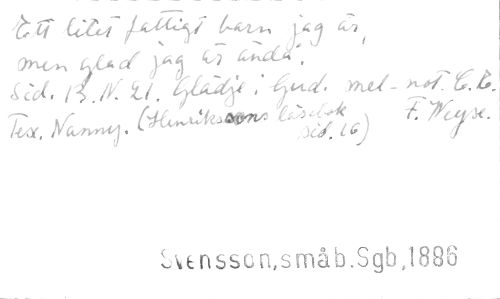 Ett litet fattigt barn jag är,
men glad jag är ändå.
Sid. 13. N. 21. Glädje i Gud. mel. not. C. E.
F. Weyse.
Tex. Nanny. (Henrikssons läsebok
sid. 16)
Svensson, småb. Sgb, 1886